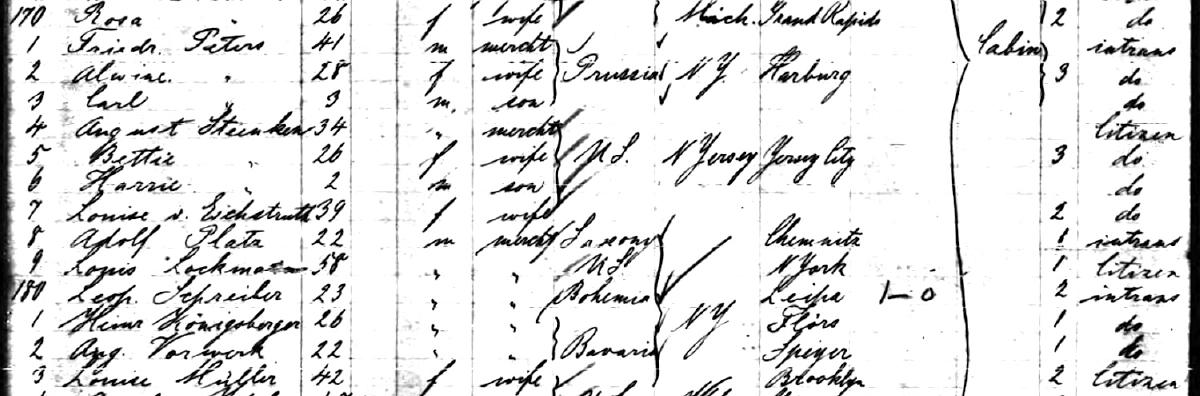 170 Rosa " 26 f wife Mich. Grand Rapids 2 do
1 Friedr. Peters 41 m mercht intrans
2 Alwine " 28 f wife Prussia NY Harburg Cabin 3 do
3 Carl " 3 m. son do
4 August Steenken 34 " mercht Citizen
5 Bettie " 26 f wife U S. N Jersey Jersey City 3 do
6 Harrie " 2 m son do
7 Louise v. Eichstruth 39 f wife 2 do
8 Adolf Platz 22 m mercht Saxony Chemnitz 1 intrans
9 Louis Lockmann 58 " " US N York 1 Citizen
180 Leop. Schreiber 23 " " Bohemia Leipa 1-0 2 intrans
1 Heinr Königsberger 26 " " NY Flörs 1 do
2 Aug. Vorwerk 22 " " Bavaria Speyer 1 do
3 Louise Müller 42 f wife Brooklyn 2 Citizen